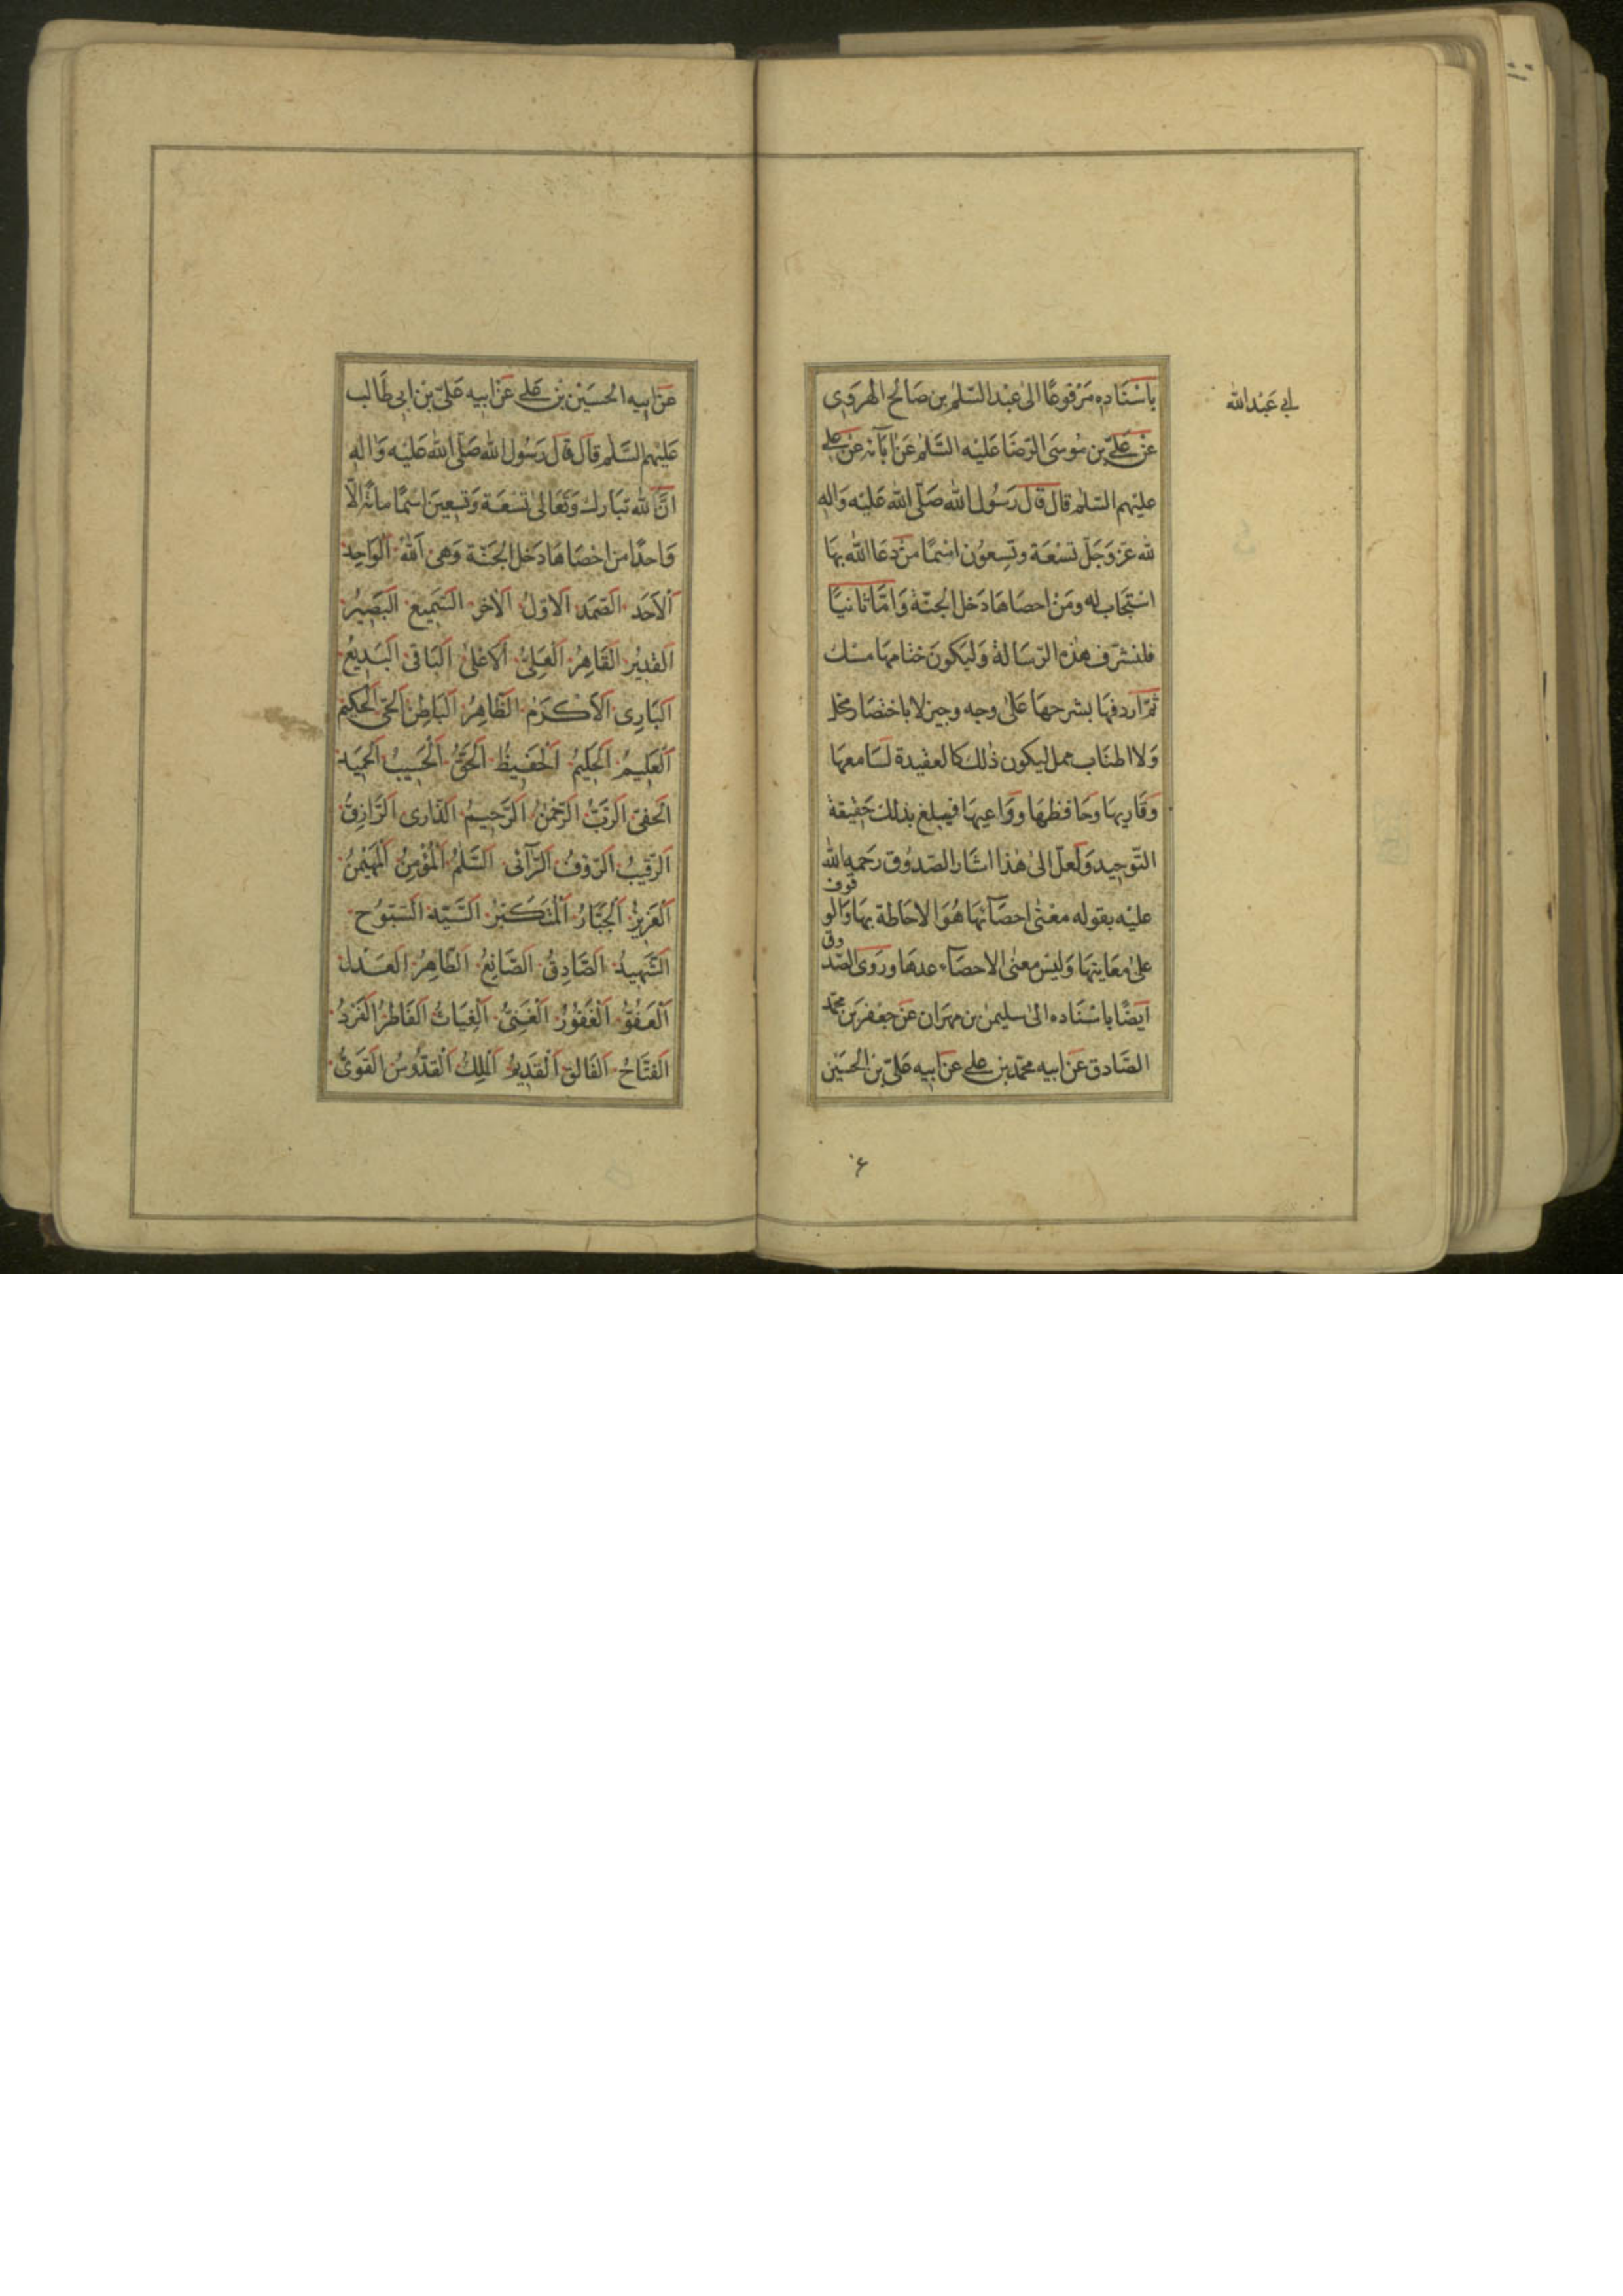 بِاسْنَادِهِ مَرْفُوعًا الىٰ عَبْد السّلٰم بن صَالح الهَروَى
عَنْ عَلىّ بن مُوسَى الرّضَا عَليْه السَّلٰم عَنْ اٰبآئه عَنْ على
عليْهم السّلٰم قال قال رَسُول الله صَلّى الله عَليْه وَاله
لله عزّ وَجَلّ تسْعَة وتِسعُون اسْمًا مَنْ دعَا الله بهَا
اسْتجَاب له ومَنْ احصَاهَا دَخل الجنّة وَامّا ثانيًا
فلنشرّف هٰذه الرّسَالة وَليكونَ ختامهَا مسْك
ثمّ اردفهَا بشرحهَا عَلىٰ وجه وجيز لا باختصَار مخل
وَلا اطناب ممل ليكون ذٰلك كالعقيدة لسَامعهَا
وَقَاريهَا وحَافظهَا ووَاعيهَا فيبلغ بذلك حَقيقة
التّوحِيد وَلعلّ الىٰ هٰذا اشَار الصّدوُق رَحمه الله
عليْه بقوله معْنٰى احصَآئهَا هُوَ الاحَاطة بهَا وَالوقوف
علىٰ معَاينهَا وَليْس معنٰى الاحصَآء عدهَا ورَوَى الصّدوق
ايضًا باسْنَاده الىٰ سليمٰن بن مهرَان عَنْ جَعْفر بن محمّد
الصَّادق عَنْ ابيه محمّد بن على عَنْ ابيه عَلىّ بن الحسَيْن
لى عَبْدالله
۶
عَنْ ابيه الحسَيْن بْن على عَنْ ابيه عَلىّ بْن ابى طَالب
عَليْهم السَّلٰم قال قال رَسُول الله صَلّى الله عَليْه وَاله
انّ لله تبَارك وَتعَالىٰ تسْعَة وَتسِعينَ اسْمًا مائة الّا
وَاحدًا من احْصَاهَا دَخل الجَنّة وَهى اَللهُ اَلوَاحِد
اَلاَحَد الصّمَد الاوّلُ الاٰخر السَّمِيع البَصِيْر
القدِيْر القَاهِرُ اَلعَلىُّ اَلاعْلىٰ البَاقى البَديعُ
البَارِى الاَكْرَمُ الظّاهِرُ البَاطِنُ الحَىّ الحَكيم
اَلعَليمُ اَلحَليمُ اَلحَفيظُ اَلحَقُّ اَلحَسِيبُ اَلحَمِيد
الحَفىّ الرّبُّ الرّحْمٰنُ الرَّحِيمُ الذّارى الرَّازِقُ
الرّقيبُ الرّؤفُ الرّآئى السَّلٰمُ المُؤْمِنُ المُهَيْمنُ
العَزيزُ الجَبَّارُ المُتَكَبّرُ السَّيّد السّبّوُح
الشّهيدُ الصَّادِقُ الصَّانِعُ الطّاهِرُ العَدل
اَلعَفُوُّ اَلغَفُوْرُ اَلغَنىُّ الغِيَاثُ الفَاطرُ الفَرْدُ
الفتَّاحُ الفَالق اَلقَدِيمُ المَلِكُ القدُّوسُ القَوىُّ